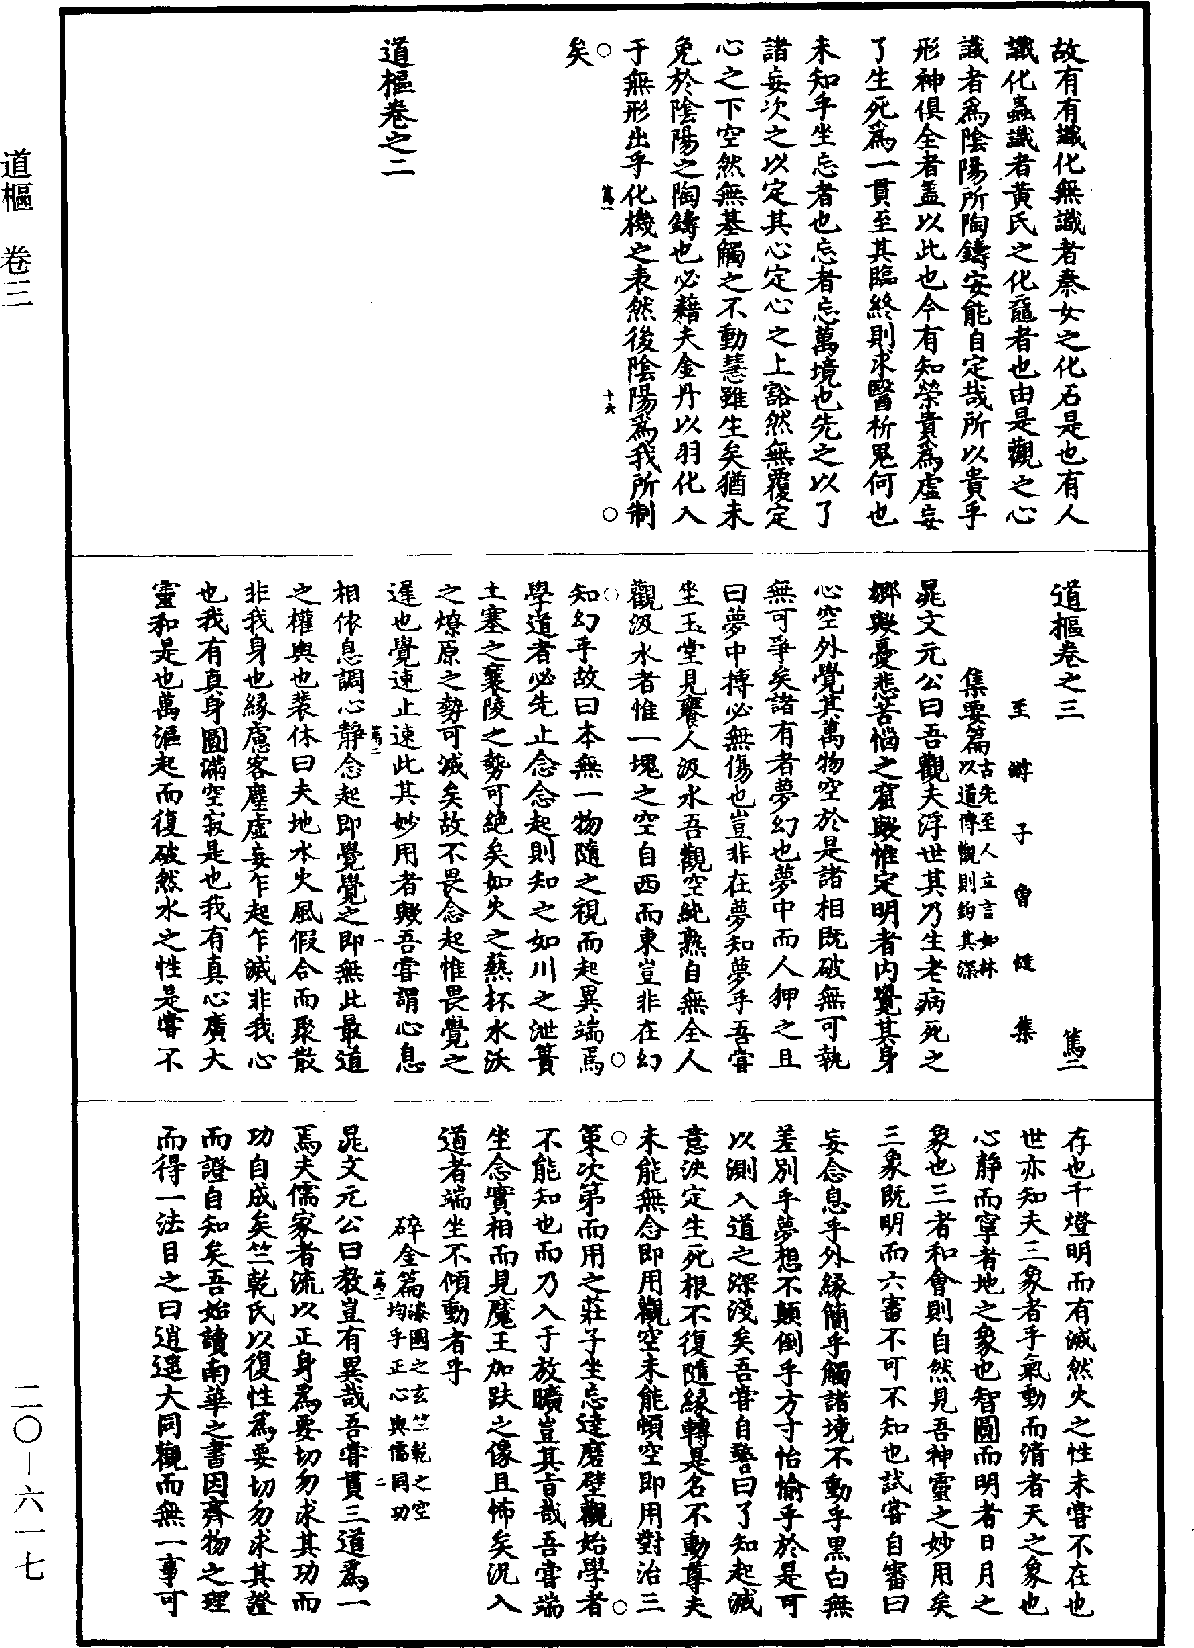 道樞　卷三
故有有識化無識者秦女之化石是也有人
識化蟲識者黃氏之化黿者也由是觀之心
識者為陰陽所陶鑄安能自定哉所以貴乎
形神俱全者蓋以此也今有知榮貴為虛妄
了生死為一貫至其臨終則求醫祈鬼何也
未知乎坐忘者也忘者忘萬境也先之以了
諸妄次之以定其心定心之上豁然無覆定
心之下空然無基觸之不動慧雖生矣猶未
免於陰陽之陶鑄也必藉夫金丹以羽化入
于無形出乎化機之表然後陰陽為我所制
篤一　十六
矣
道樞卷之二
道樞卷之三　篤二
至游子曾慥集
集要篇古先至人立言如林
以道博觀則鈎其深
晁文元公曰吾觀夫浮世其乃生老病死之
鄉與憂悲苦惱之窟歟惟定明者內覺其身
心空外覺其萬物空於是諸相既破無可執
無可爭矣諸有者夢幻也夢中而人狎之且
曰夢中摶必無傷也豈非在夢知夢乎吾嘗
坐玉堂見饔人汲水吾觀空純熟自無全人
觀汲水者惟一塊之空自西而東豈非在幻
知幻乎故曰本無一物隨之視而起異端焉
學道者必先止念念起則知之如川之泄簣
土塞之襄陵之勢可絕矣如火之爇杯水沃
之燎原之勢可滅矣故不畏念起惟畏覺之
遲也覺速止速此其妙用者歟吾嘗謂心息
篤二　一
相依息調心靜念起即覺覺之即無此最道
之權輿也裴休曰夫地水火風假合而聚散
非我身也緣慮客塵虛妄乍起乍滅非我心
也我有真身圓滿空寂是也我有真心廣大
靈和是也萬漚起而復破然水之性是嘗不
存也千燈明而有滅然火之性未嘗不在也
世亦知夫三象者乎氣動而清者天之象也
心靜而寧者地之象也智圓而明者日月之
象也三者和會則自然見吾神靈之妙用矣
三象既明而六審不可不知也試嘗自審曰
妄念息乎外緣簡乎觸諸境不動乎黑白無
差別乎夢想不顛倒乎方寸怡愉乎於是可
以測入道之深淺矣吾嘗自警曰了知起滅
意決定生死根不復隨緣轉是名不動尊夫
未能無念即用觀空未能頓空即用對治三
策次第而用之莊子坐忘達磨壁觀始學者
不能知也而乃入于放曠豈其旨哉吾嘗端
坐念實相而見魔王加趺之像且怖矣況入
道者端坐不傾動者乎
碎金篇漆園之玄竺乾之空
均乎正心與儒同功
篤二　二
晁文元公曰教豈有異哉吾嘗貫三道為一
焉夫儒家者流以正身為要切勿求其功而
功自成矣竺乾氏以復性為要切勿求其證
而證自知矣吾始讀南華之書因齊物之理
而得一法目之曰逍遙大同觀而無一事可
二〇—六一七